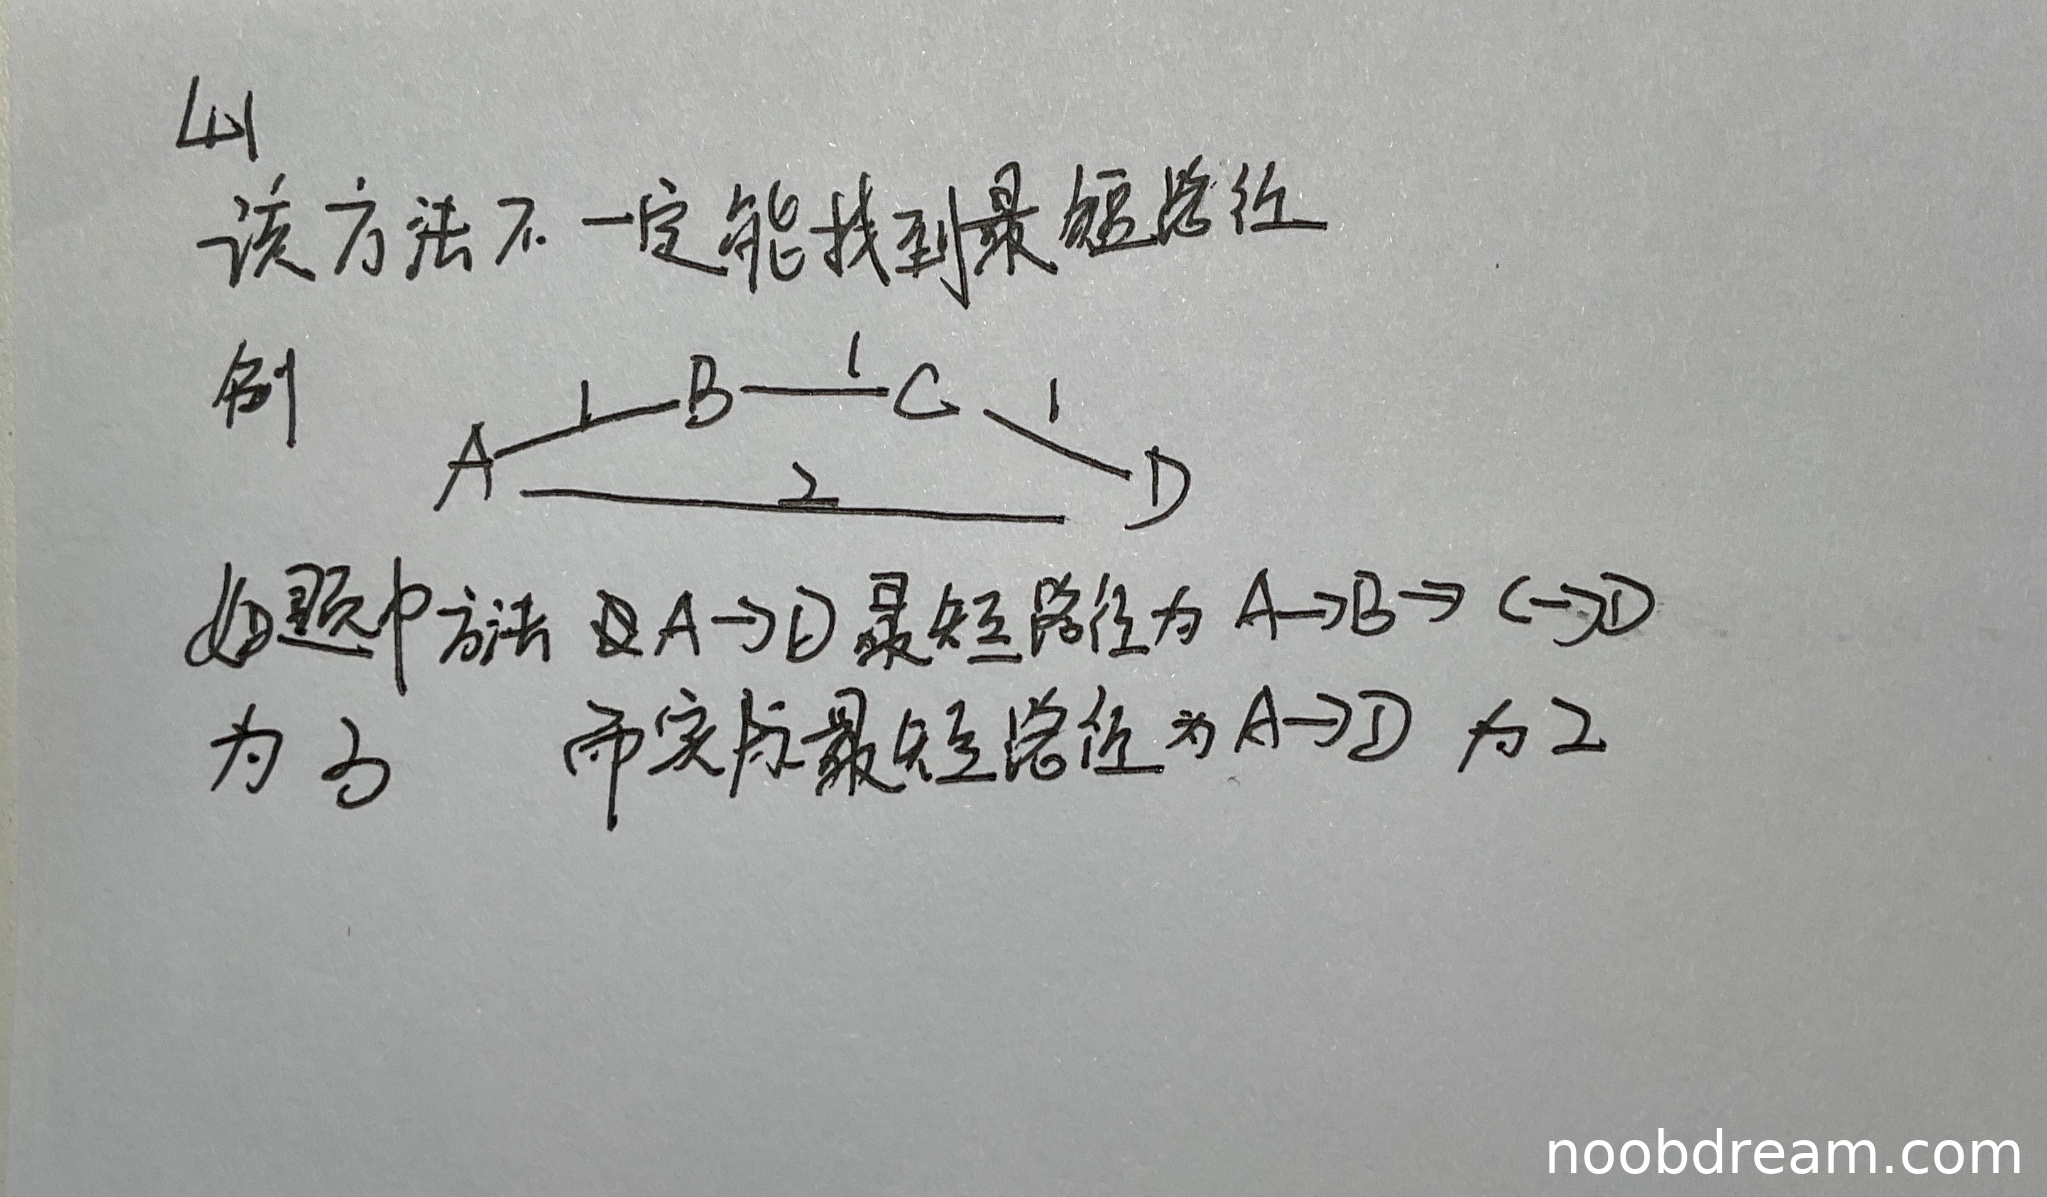 该方法不一定能找到最短路径
例
1 B 1 C 1
A 2 D
如题中方法 A→D最短路径为 A→B→C→D
为3 而实际最短路径为A→D 为2
noobdream.com